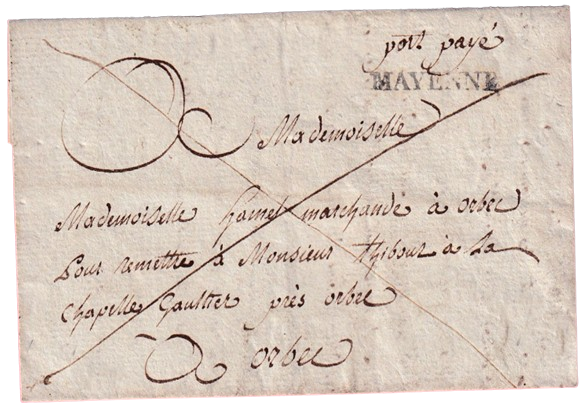 port payé
MAYENNE
Mademoiselle
Mademoiselle hamel marchande à orbec
pour remettre à Monsieur thibout à La
chapelle Gaultier près orbec
à orbec